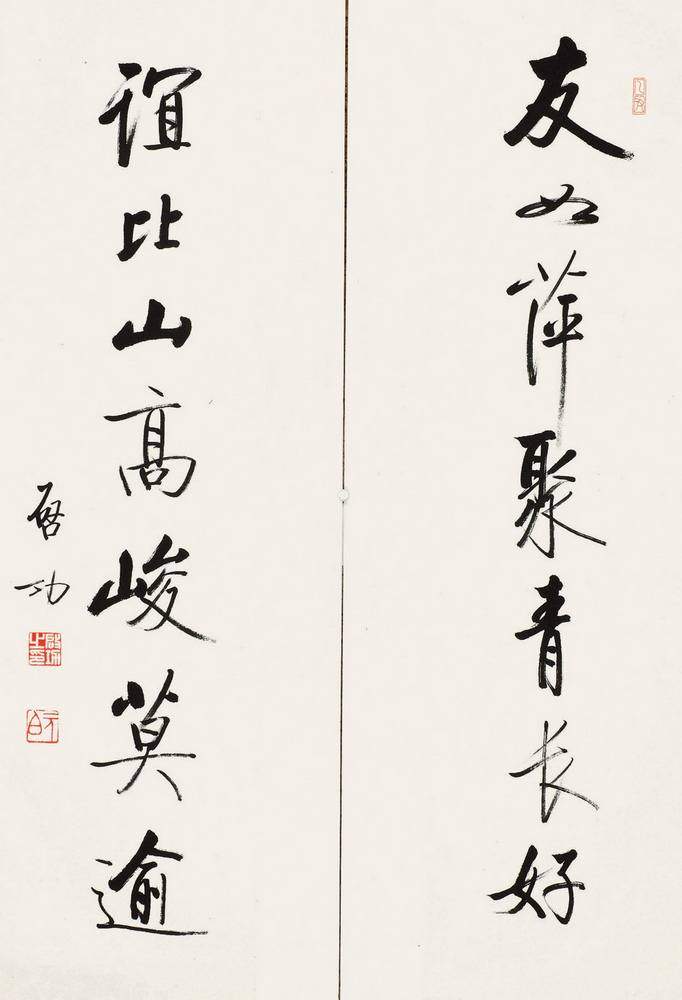 友如萍聚青长好
谊比山高峻莫逾
启功